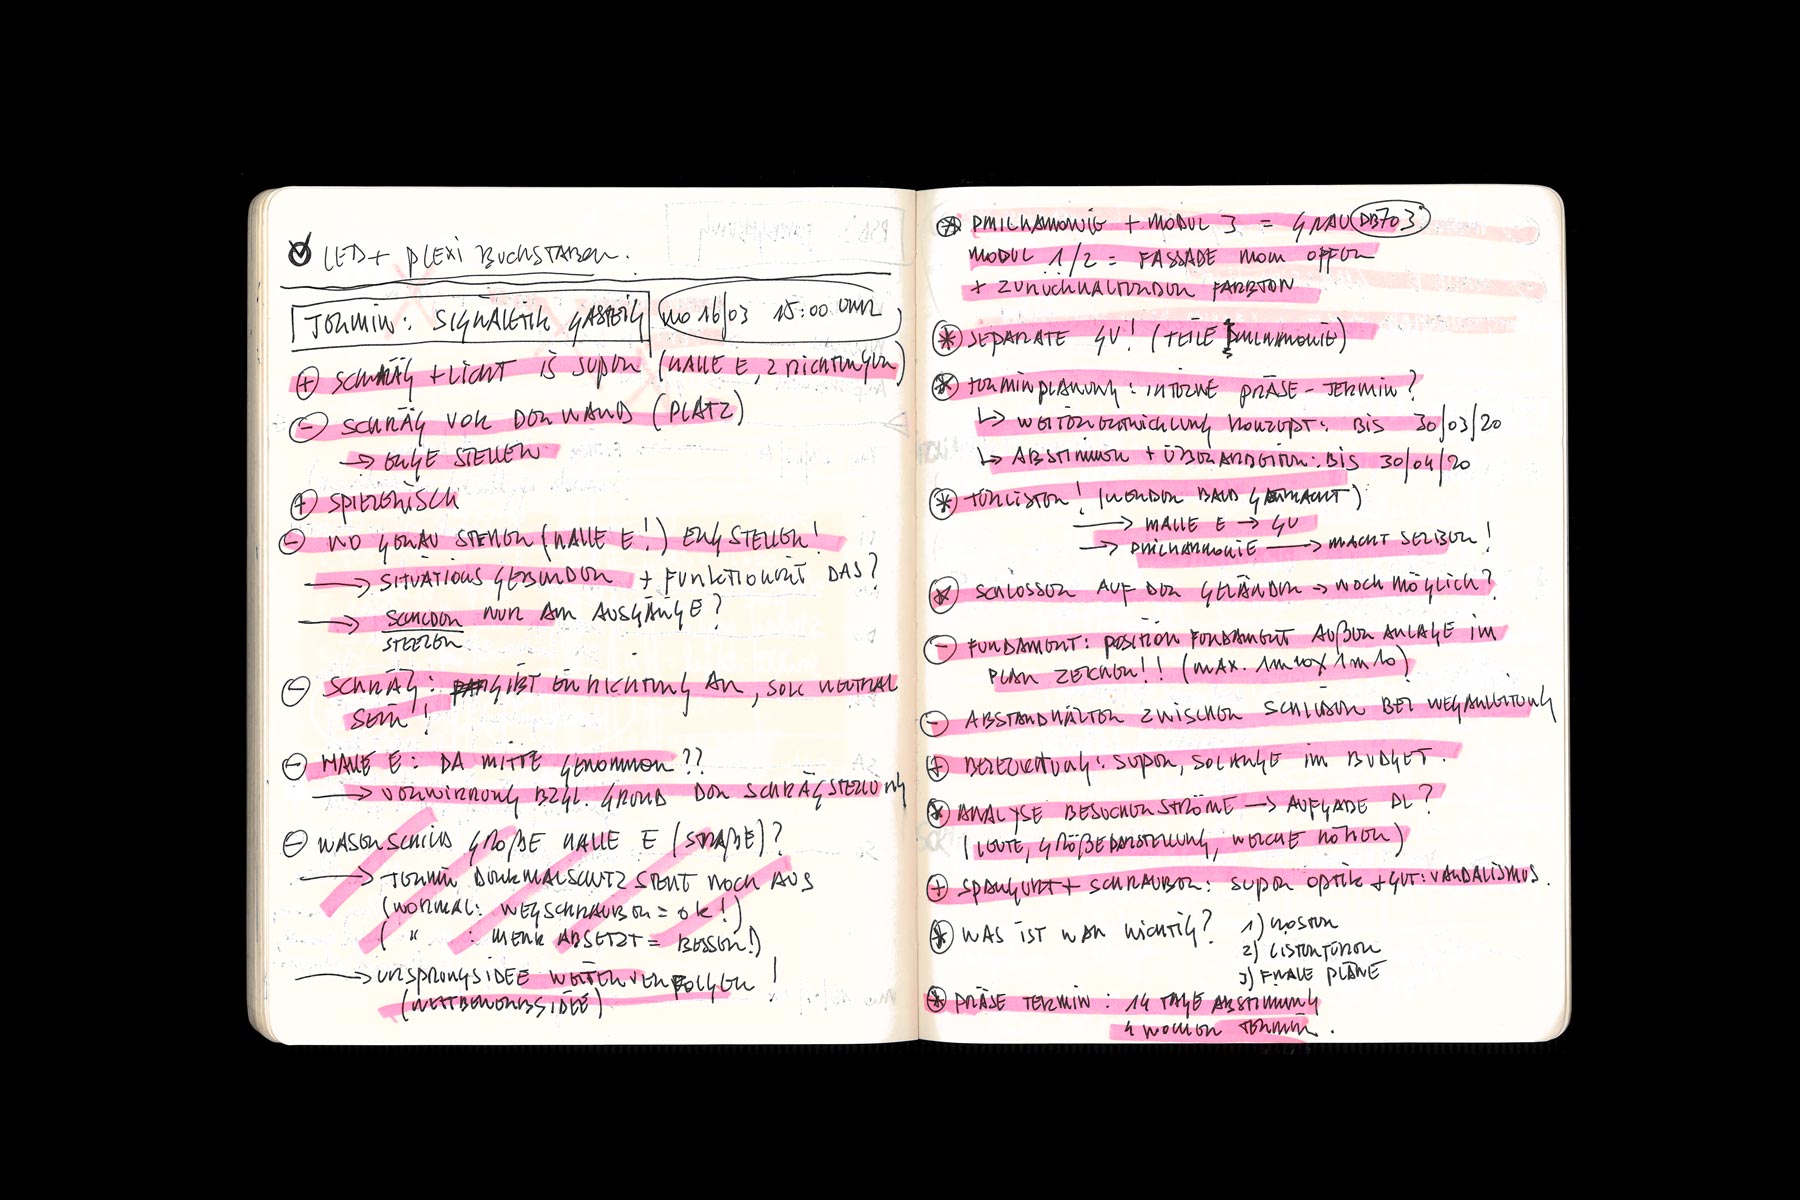 LED + PLEXI BUCHSTABEN.
TERMIN: SIGNALETIK GASTEIG MO 16/03 15:00 UHR
+ SCHRÄG + LICHT IS SUPER (HALLE E, 2 RICHTUNGEN)
- SCHRÄG VOR DER WAND (PLATZ)
→ ENGE STELLEN
+ SPIELERISCH
- WO GENAU STEHEN (HALLE E!) ENGSTELLEN!
→ SITUATIONSGEBUNDEN + FUNKTIONIERT DAS?
→ SCHILDER NUR AN AUSGÄNGE?
STEELEN
- SCHRÄG: GIBT EINRICHTUNG AN, SOLL NEUTRAL
SEIN!
- HALLE E: DA MITTE GENOMMEN??
→ VERWIRRUNG BZGL. GRUND DER SCHRÄGSTELLUNG
- WASERSCHILD GRÖßE HALLE E (STRAßE)?
→ TERMIN DENKMALSCHUTZ STEHT NOCH AUS
(NORMAL: WEGSCHRAUBEN = OK!)
( " : MEHR ABSETZT = BESSER!)
→ URSPRUNGSIDEE WEITERVERFOLGEN!
(WETTBEWERBSIDEE)
* PHILHAMONIE + MODUL 3 = GRAU DB703
MODUL 1/2 = FASSADE NOCH OFFEN
+ ZURÜCKHALTENDER FARBTON
* SEPARATE GU! (TEILE PHILHAMONIE)
* TERMINPLANUNG: INTERNE PRÄSE-TERMIN?
↳ WEITERENTWICKLUNG KONZEPT: BIS 30/03/20
↳ ABSTIMMEN + ÜBERARBEITEN: BIS 30/04/20
* TÜRLISTEN! (WERDEN BALD GEMACHT)
→ HALLE E → GU
→ PHILHARMONIE → MACHT SELBER!
* SCHLOSSER AUF DEM GELÄNDER → NOCH MÖGLICH?
- FUNDAMENT: POSITION FUNDAMENT AUßENANLAGE IM
PLAN ZEICHEN!! (MAX. 1M10 X 1M10)
- ABSTANDHALTER ZWISCHEN SCHILDERN BEI WEGANLEITUNG
+ BELEUCHTUNG: SUPER, SOLANGE IM BUDGET.
* ANALYSE BESUCHERSTRÖME → AUFGABE DL?
(LEUTE, GRÖßEDARSTELLUNG, WELCHE HÖHEN)
+ SPANGURT + SCHRAUBEN: SUPER OPTIK + GUT: VANDALISMUS.
* WAS IST WAR WICHTIG? 1) KOSTEN
2) LISTENTÜREN
3) FINALE PLÄNE
* PRÄSE TERMIN: 14 TAGE ABSTIMMUNG
4 WOCHEN TERMIN.